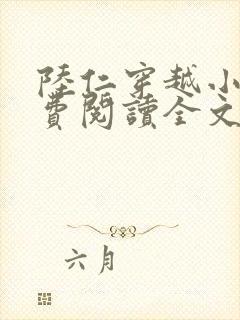 陸仁穿越小
費閱讀全文
六月